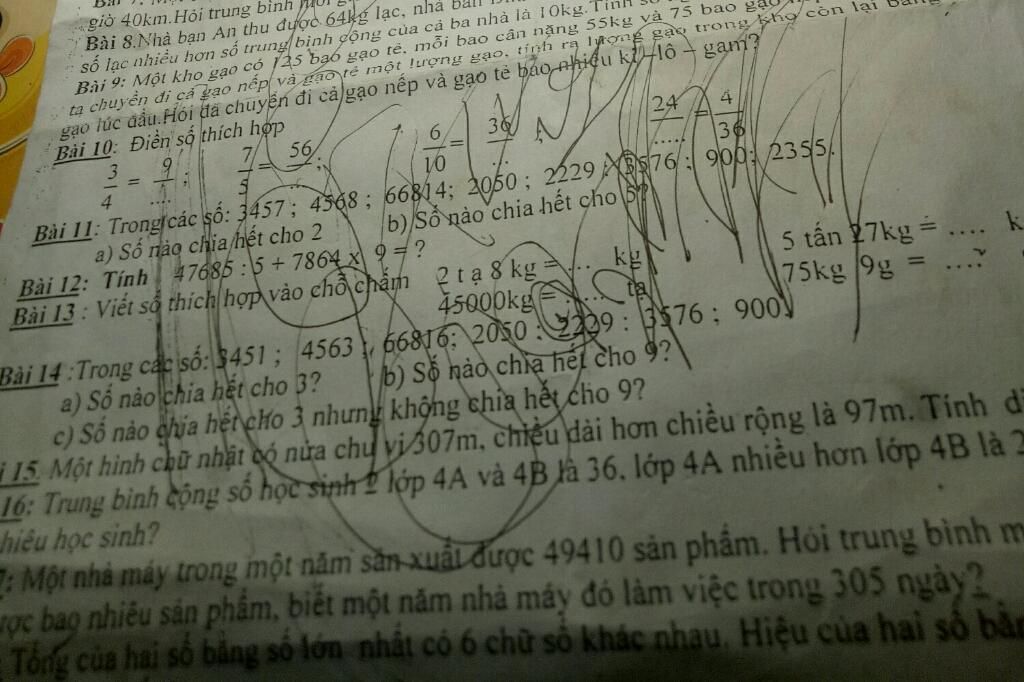 giờ 40km.Hỏi trung bình
Bài 8.Nhà bạn An thu được 64kg lạc, nhà bạn
số lạc nhiều hơn số trung bình cộng của cả ba nhà là 10kg.Tính số
Bài 9: Một kho gạo có 125 bao gạo tẻ, mỗi bao cân nặng 55kg và 75 bao gạo
tạ chuyển đi cả gạo nếp và gạo tẻ một lượng gạo, tính ra lượng gạo trong kho còn lại bằng
gạo lúc đầu.Hỏi đã chuyển đi cả gạo nếp và gạo tẻ bao nhiêu ki – lô – gam?
Bài 10: Điền số thích hợp
3/4 = 9/.... ; 7/5 = 56/... ; 6/10 = 36/... ; 24/..... = 4/36
Bài 11: Trong các số: 3457 ; 4568 ; 66814; 2050 ; 2229 ; 3576 ; 900; 2355.
a) Số nào chia hết cho 2 b) Số nào chia hết cho 5?
Bài 12: Tính 47685 : 5 + 7864 x 9 = ?
Bài 13 : Viết số thích hợp vào chỗ chấm 2 tạ 8 kg = .... kg 5 tấn 27kg = .... k
45000kg = ...... tạ 75kg 9g = ....
Bài 14 :Trong các số: 3451 ; 4563 ; 66816; 2050 ; 2229 : 3576 ; 900
a) Số nào chia hết cho 3? b) Số nào chia hết cho 9?
c) Số nào chia hết cho 3 nhưng không chia hết cho 9?
i 15. Một hình chữ nhật có nửa chu vi 307m, chiều dài hơn chiều rộng là 97m. Tính d
16: Trung bình cộng số học sinh 2 lớp 4A và 4B là 36, lớp 4A nhiều hơn lớp 4B là 2
hiêu học sinh?
7: Một nhà máy trong một năm sản xuất được 49410 sản phẩm. Hỏi trung bình m
ược bao nhiêu sản phẩm, biết một năm nhà máy đó làm việc trong 305 ngày?
Tổng của hai số bằng số lớn nhất có 6 chữ số khác nhau. Hiệu của hai số bằn